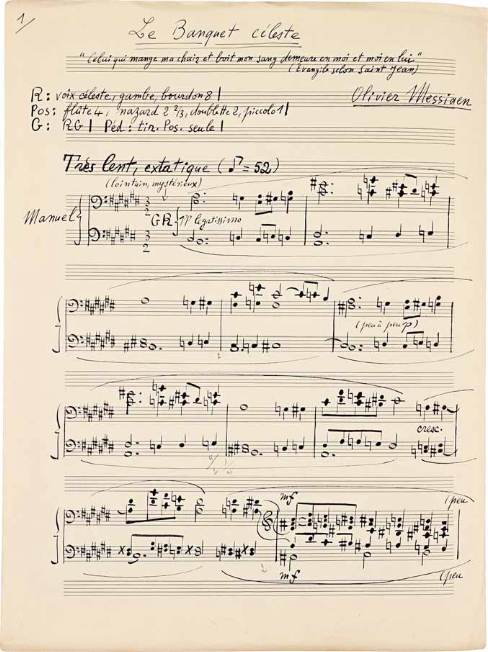 1
Le Banquet céleste
"Celui qui mange ma chair et boit mon sang demeure en moi et moi en lui"
(Evangile selon Saint Jean)
R: voix céleste, gambe, bourdon 8 |
Olivier Messiaen
Pos: flûte 4, nazard 2 2/3, doublette 2, piccolo 1 |
G: RG | Péd: tir. Pos. seule |
Très lent, extatique (♪=52)
(lointain, mystérieux)
Manuel
3
2
3
2
GR: pp legatissimo
(peu à peu p)
cresc.
mf
(peu
mf
(peu